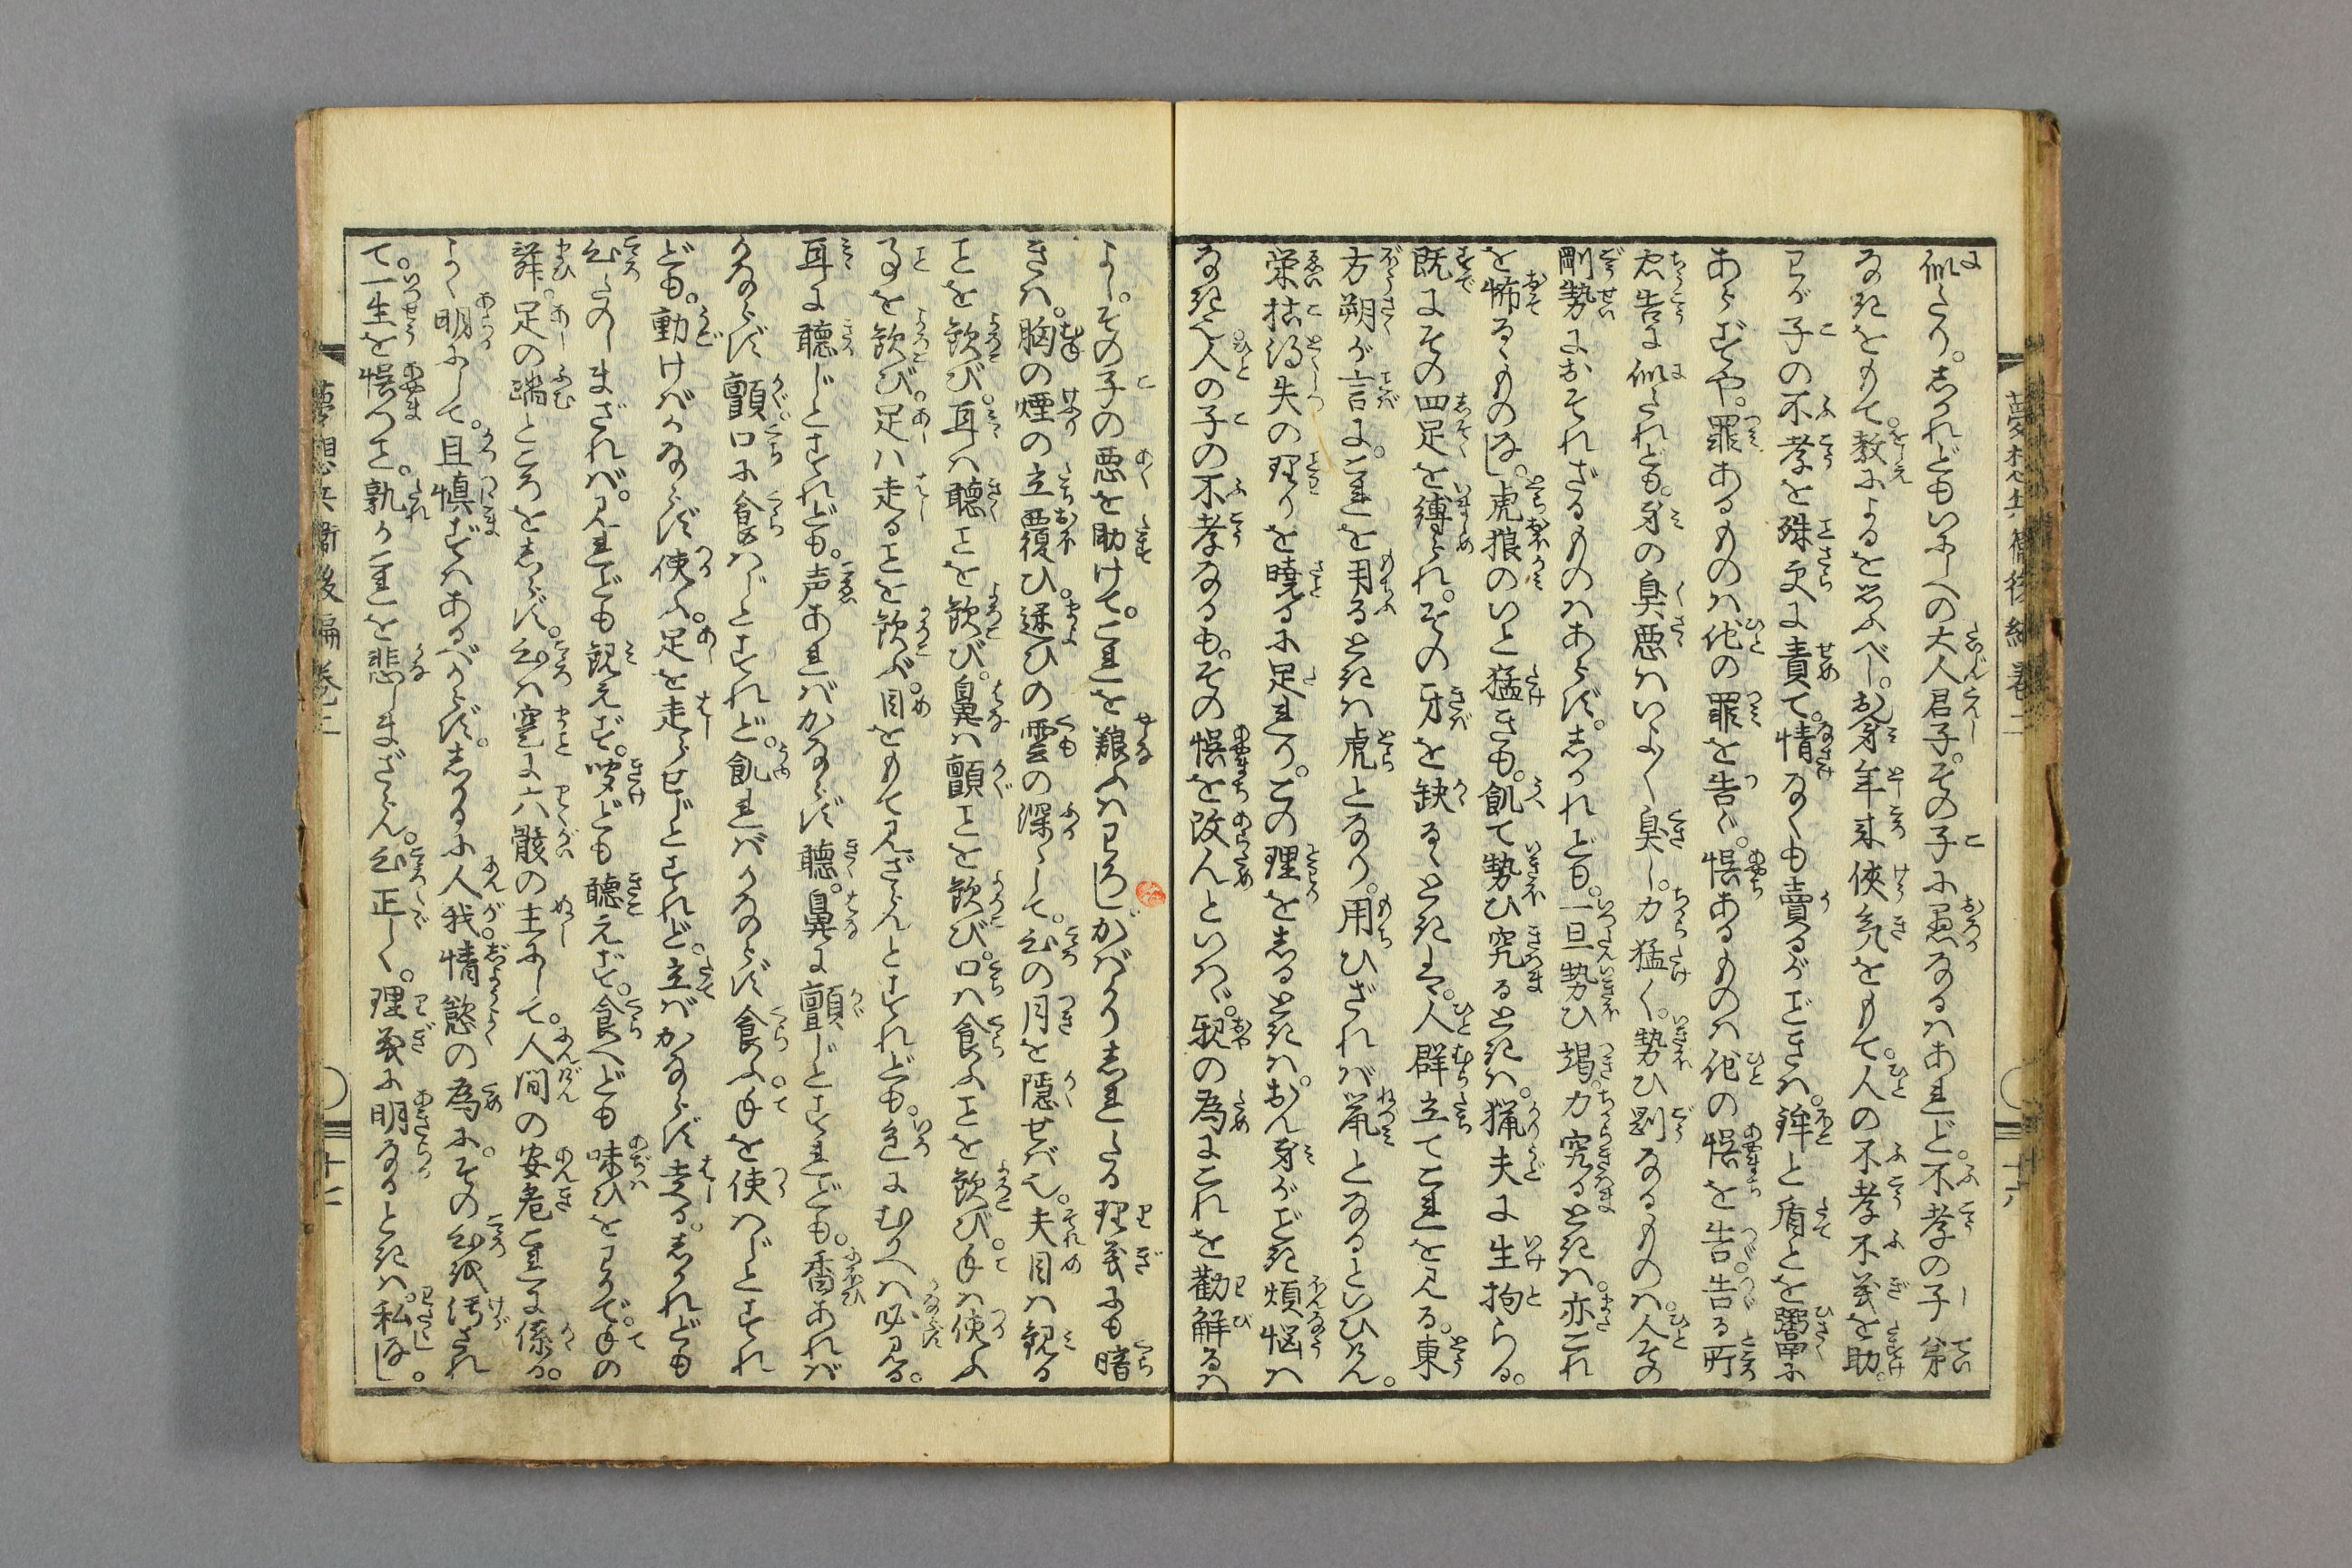 夢想兵衛後編巻二
十六
似たり。しかれどもいにしへの大人君子。その子に愚なるはあれど。不孝の子弟
なきをもて。教によるを思ふべし。おん身年来侠気をもて。人の不孝不義を助。
わが子の不孝を殊更に責て。情なくも売るがごときは。鉾と盾とを鬻ぐに
あらずや。罪あるものは他の罪を告ぐ。悞あるものは他の悞を告。告る所
忠告に似たれども。身の臭悪はいよ〱臭し。力猛く。勢ひ剛なるものは。人その
剛勢におそれざるものはあらず。しかれども。一旦勢ひ竭。力究るときは。亦これ
を怖るゝものなし。虎狼のいと猛きも。飢て勢ひ究るときは。猟夫に生拘らる。
既にその四足を縛られ。その牙を缺るゝときは。人群立てこれを見る。東
方朔が言に。これを用るときは虎となり。用ひざれば鼠となるといひけん。
栄枯得失の理りを暁るに足れり。この理をしるときは。おん身がごとき煩悩は
なき也人の子の不孝なるも。その悞を改んといはゞ。親の為にこれを勧解るは
よし。その子の悪を助けて。これを養ふはわろし。がばかりしれたる理義にも暗
きは。胸の煙の立覆ひ。迷ひの雲の深くして。心の月を隠せば也。夫目は観る
ことを歓び。耳は聴ことを歓び。鼻は齅ことを歓び。口は食ふことを歓び。手は使ふ
ことを歓び。足は走ることを歓ぶ。目をもて見ざらんとすれども。色にむかへは必見る。
耳に聴じとすれども。声あればかならず聴。鼻に齅じとすれども。香あれば
かならず齅。口に食はじとすれど。飢ればかならず食ふ。手を使はじとすれ
ども。動けばかならず使ふ。足を走らせじとすれど。立ばかならず走る。しかれども
心たのしまざれば。見れども観えず。聞ども聴えず。食へども味ひをわかで。手の
舞。足の蹈ところをしらず。心は寔に六骸の主にして。人間の安危これに係る。
よく明にして。且慎ずはあるべからず。しかるに人我情慾の為に。その心を汚され
て。一生を悞つこと。孰かこれを悲しまざらん。心正しく。理義に明なるときは。私なし。
夢想兵衛後編巻二
十七